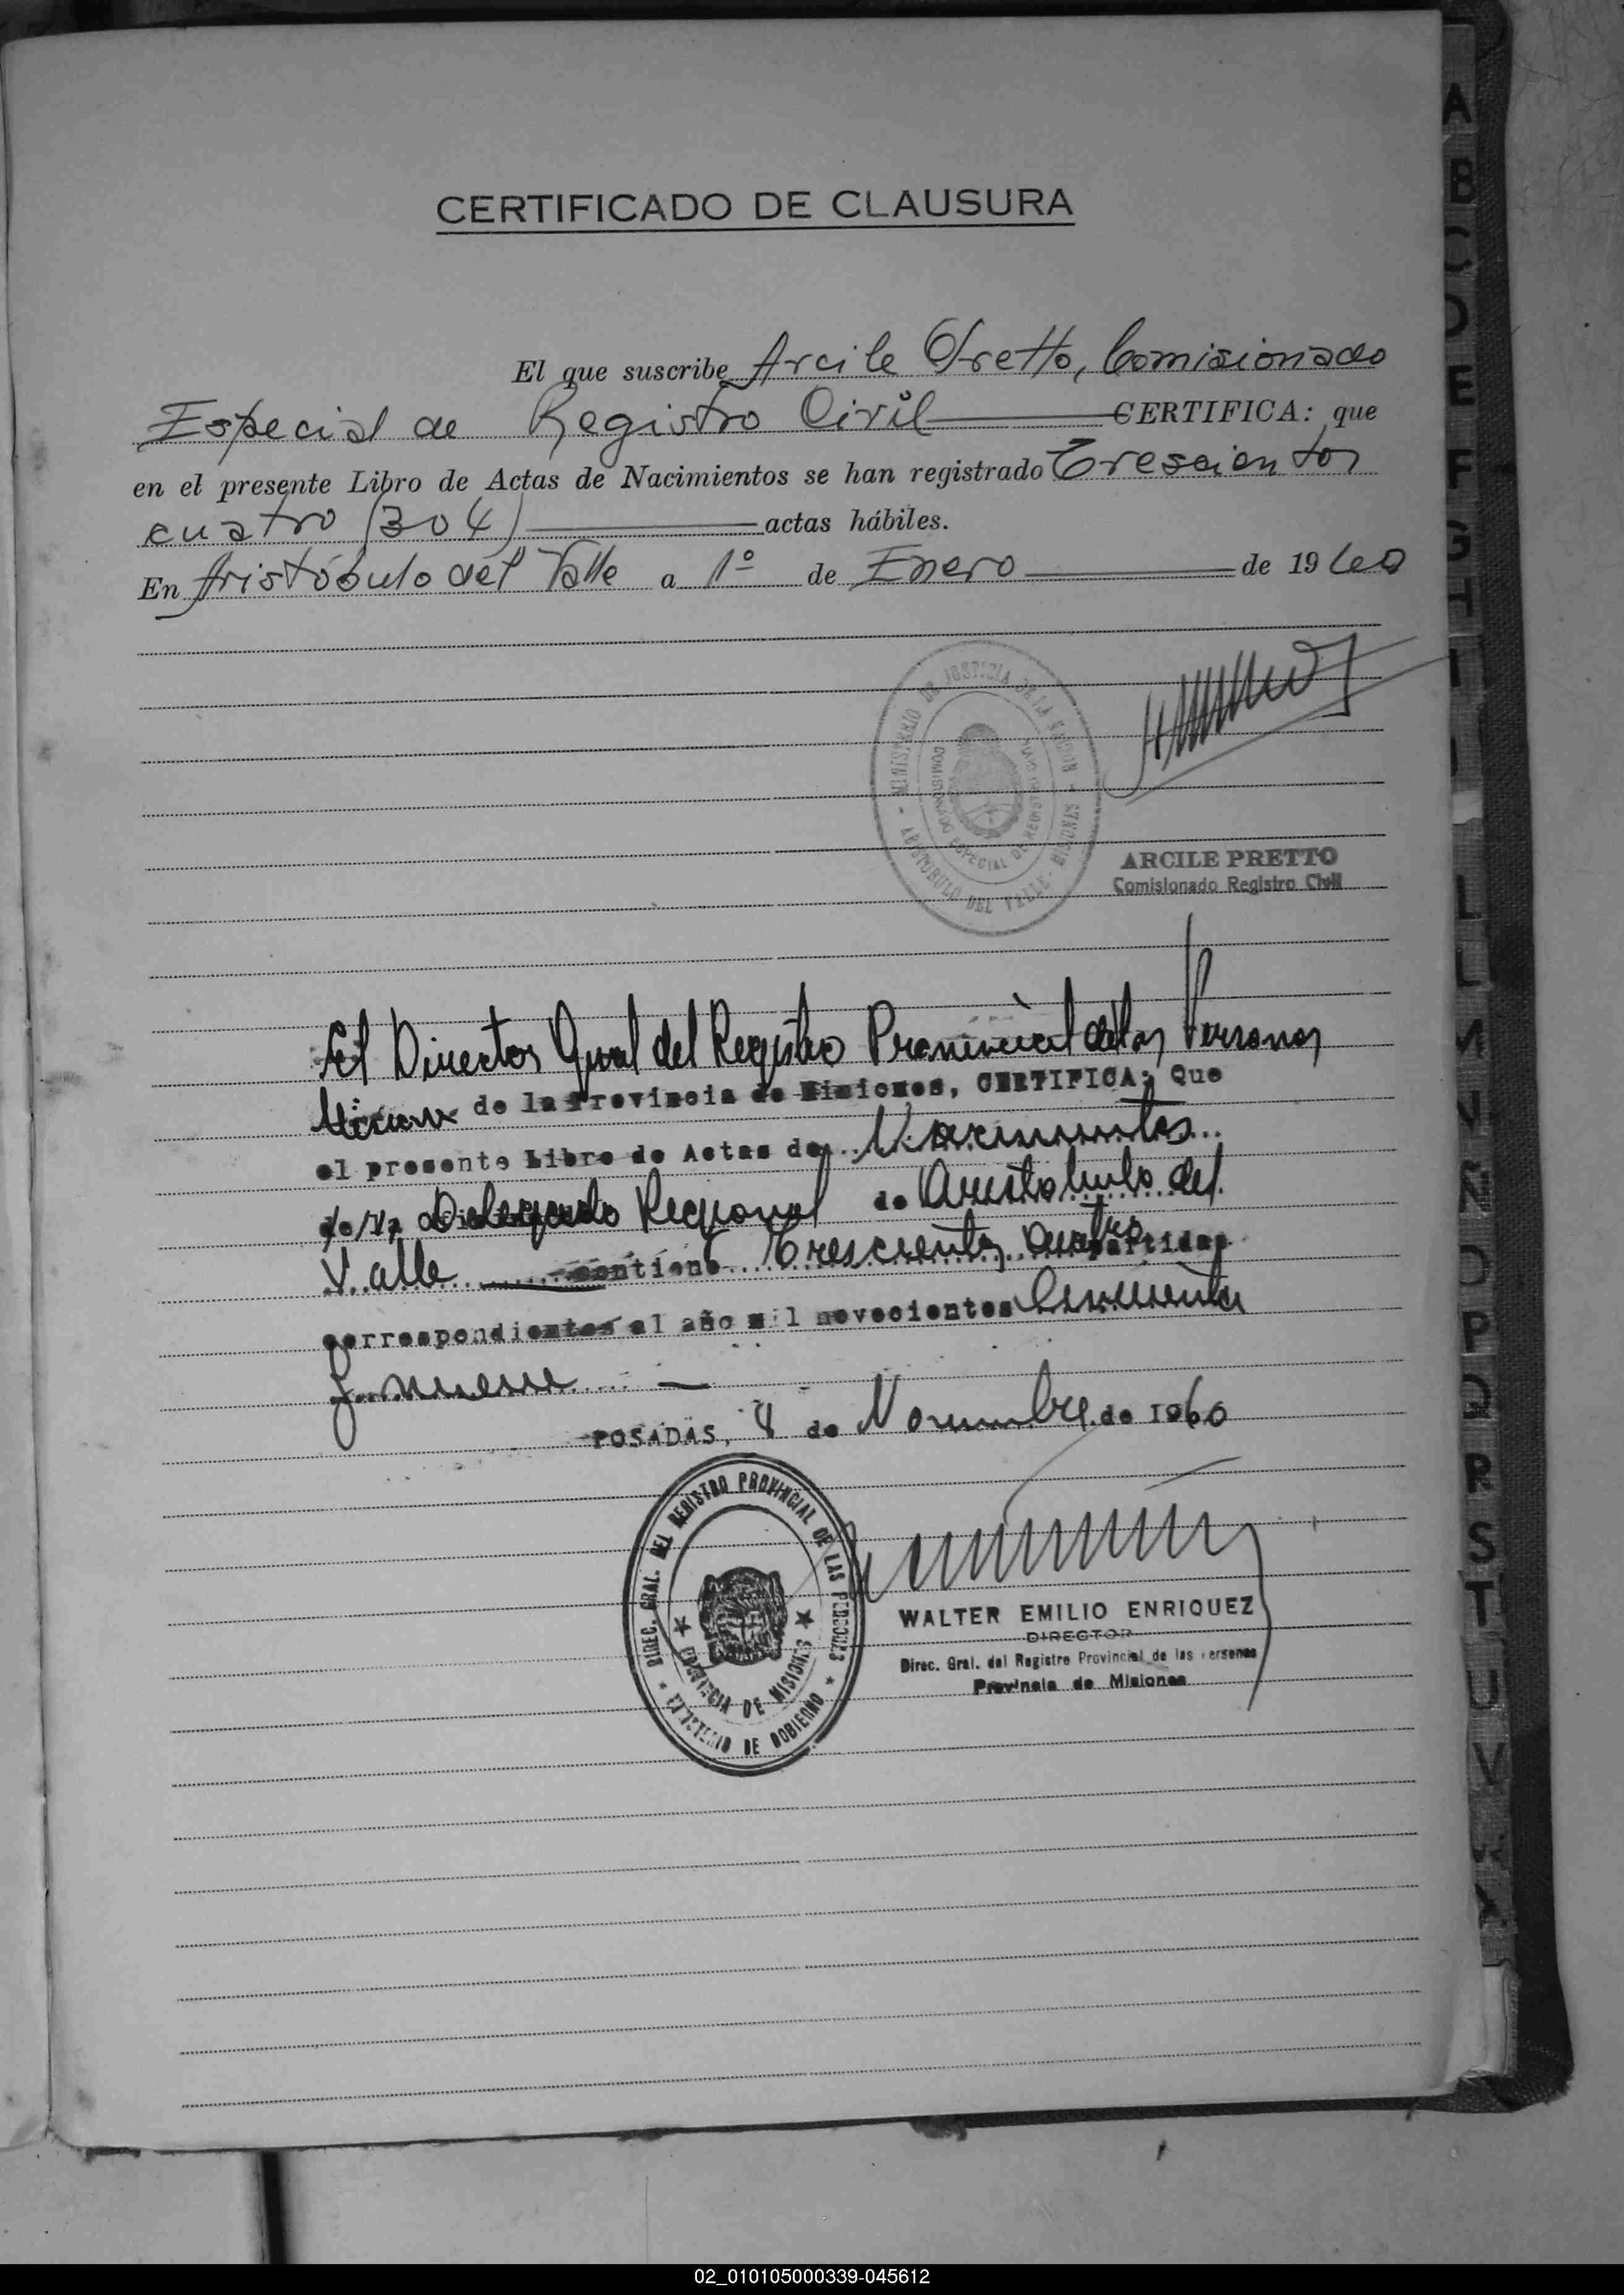 CERTIFICADO DE CLAUSURA
El que suscribe Arcile Pretto, Comisionado
Especial de Registro Civil CERTIFICA: que
en el presente Libro de Actas de Nacimientos se han registrado Trescientos
cuatro (304) actas hábiles.
En Aristóbulo del Valle a 1º de Enero de 1960
MINISTERIO DE JUSTICIA DE LA NACION
COMISIONADO ESPECIAL DE REGISTRO CIVIL
ARISTOBULO DEL VALLE - MISIONES
ARCILE PRETTO
Comisionado Registro Civil
El Director Gral del Registro Provincial de las Personas
de la Provincia de Misiones, CERTIFICA: Que
el presente Libro de Actas de Nacimientos
Delegado Regional de Aristobulo del
Valle contiene Trescientos cuatro partidas
correspondientes al año mil novecientos Cincuenta
y nueve
POSADAS, 4 de Noviembre de 1960
DIREC. GRAL. DEL REGISTRO PROVINCIAL DE LAS PERSONAS
PROVINCIA DE MISIONES
MINISTERIO DE GOBIERNO
WALTER EMILIO ENRIQUEZ
DIRECTOR
Direc. Gral. del Registro Provincial de las ersonas
Provincia de Misiones
A
B
C
D
E
F
G
H
I
J
L
LL
M
N
Ñ
O
P
Q
R
S
T
U
V
02_010105000339-045612